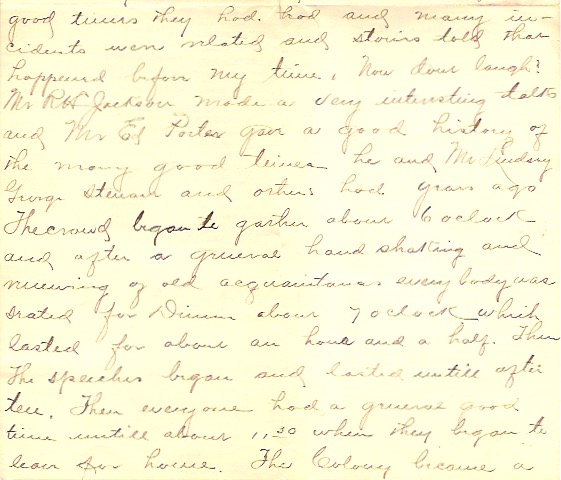 good times they had. had and many in-
cidents were related and stories told that
happened before my time, Now dont laugh!
Mr R H Jackson made a very intersting talk
and Mr Ed Porter gave a good history of
the many good times he and Mr Lindsey
George Stewart and others had years ago
The crowd began to gather about 6 oclock
and after a grueral hand shaking and
renewing of old acquaintances everybody was
seated for Dinner about 7 oclock which
lasted for about an hour and a half. Then
The speeches began and lasted untill after
ten, Then everyone had a grueral good
time untill about 11 30 when they began to
leave for home. The Colony became a